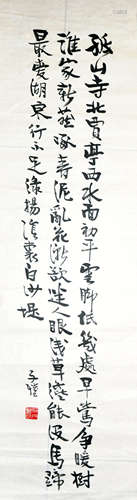 孤山寺北賈亭西水面初平雲脚低幾處早鶯爭暖樹
誰家新燕啄春泥亂花漸欲迷人眼淺草纔能沒馬蹄
最愛湖東行不足綠楊陰裏白沙堤
子愷